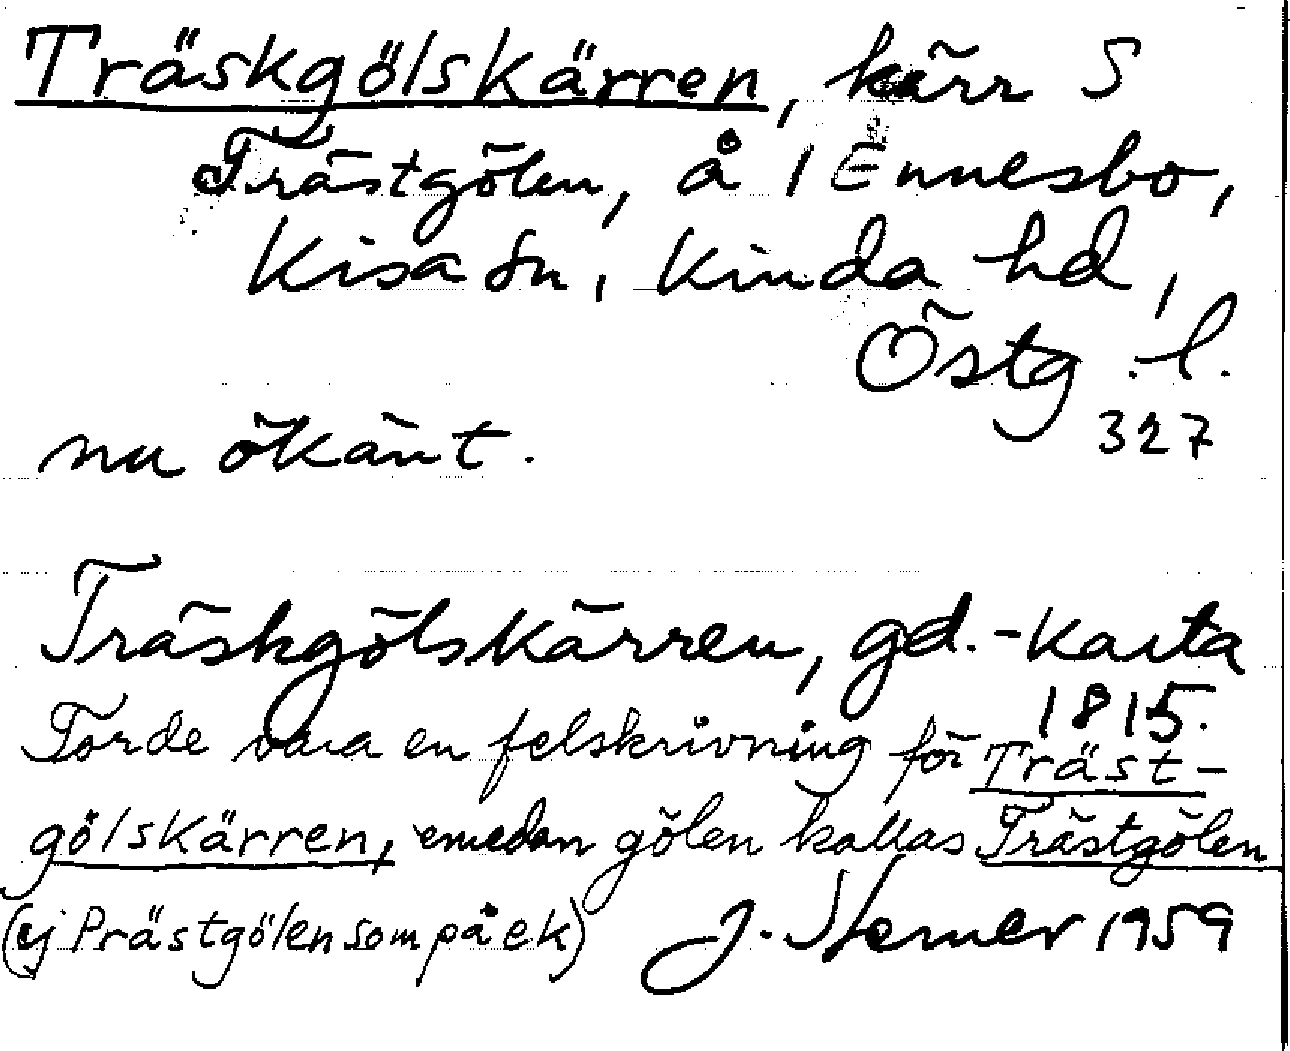 Träskgölskärren, kärr S
Trästgölen, å 1 Ennesbo,
Kisa sn, Kinda hd,
Östg. l.
327
nu okänt.
Träskgölskärren, gd.-karta
1815.
Torde vara en felskrivning för Träst-
gölskärren, emedan gölen kallas Trästgölen
(ej Prästgölen som på ek) J. Sterner 1959